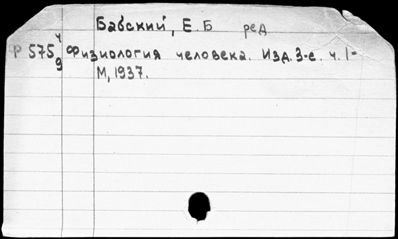 Бабский, Е.Б ред
Ф 575 4/9 Физиология человека. Изд. 3-е. ч. I-
М, 1937.